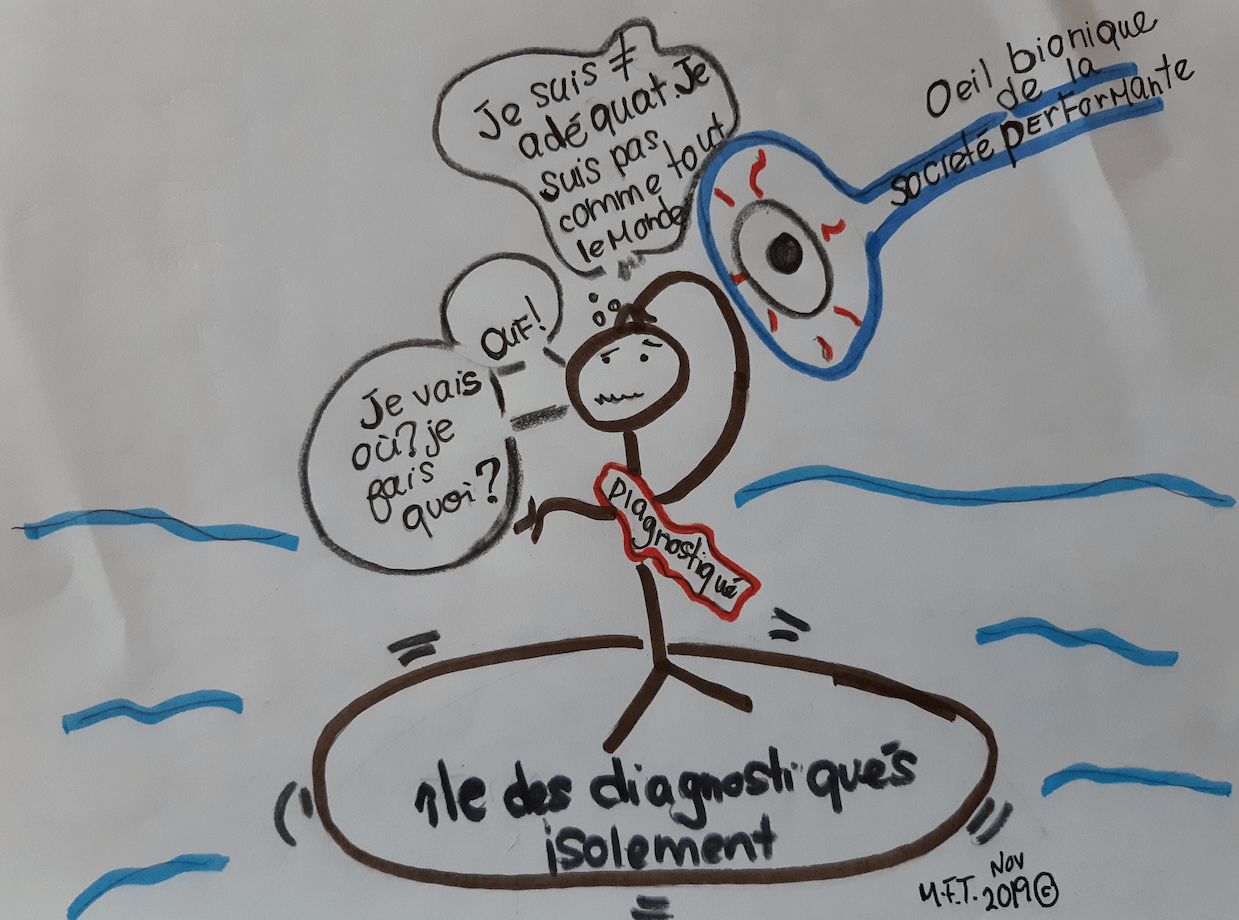 Je suis ≠
adéquat. Je
suis pas
comme tout
le Monde
Oeil bionique
de la
société PERFORMANTE
OUF!
Je vais
où? je
fais
quoi?
Diagnostiqué
île des diagnostiqués
isolement
Nov
M.F.T. 2019©